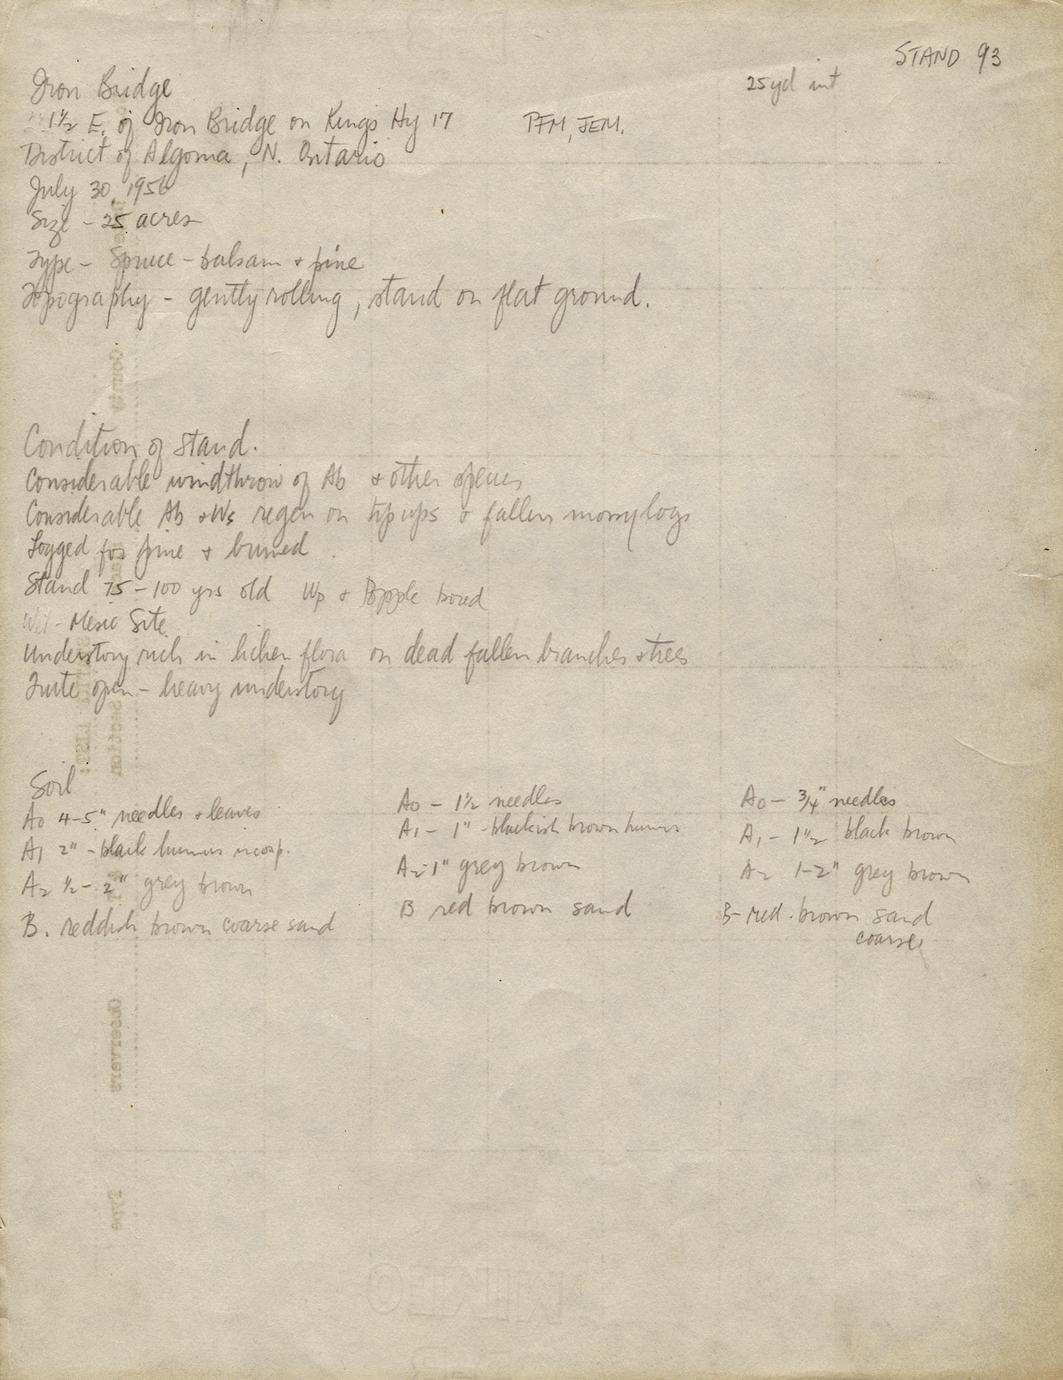 STAND 93
25 yd int
Iron Bridge
1½ E. of Iron Bridge on Kings Hy 17 PFM, JEM.
District of Algoma, N. Ontario
July 30, 1956
Size - 25 acres
Type - Spruce - balsam + pine
Topography - gently rolling, stand on flat ground.
Condition of Stand.
Considerable windthrow of Ab + other species
Considerable Ab + Ws regen on tip ups + fallen mossy logs
Logged for pine + burned.
Stand 75-100 yrs old Wp + Popple bored
Wet - Mesic Site
Understory rich in lichen flora on dead fallen branches + trees
Quite open - heavy understory
Soil
A0 4-5" needles + leaves
A1 2" - black humus incorp.
A2 ½ - 2" grey brown
B. reddish brown coarse sand
A0 - 1½ needles
A1 - 1" - blackish brown humus
A2 - 1" grey brown
B red brown sand
A0 - 3/4" needles
A1 - 1½ black brown
A2 1-2" grey brown
B - red - brown sand
coarse
County
Section
Observers
Type
MIMEO